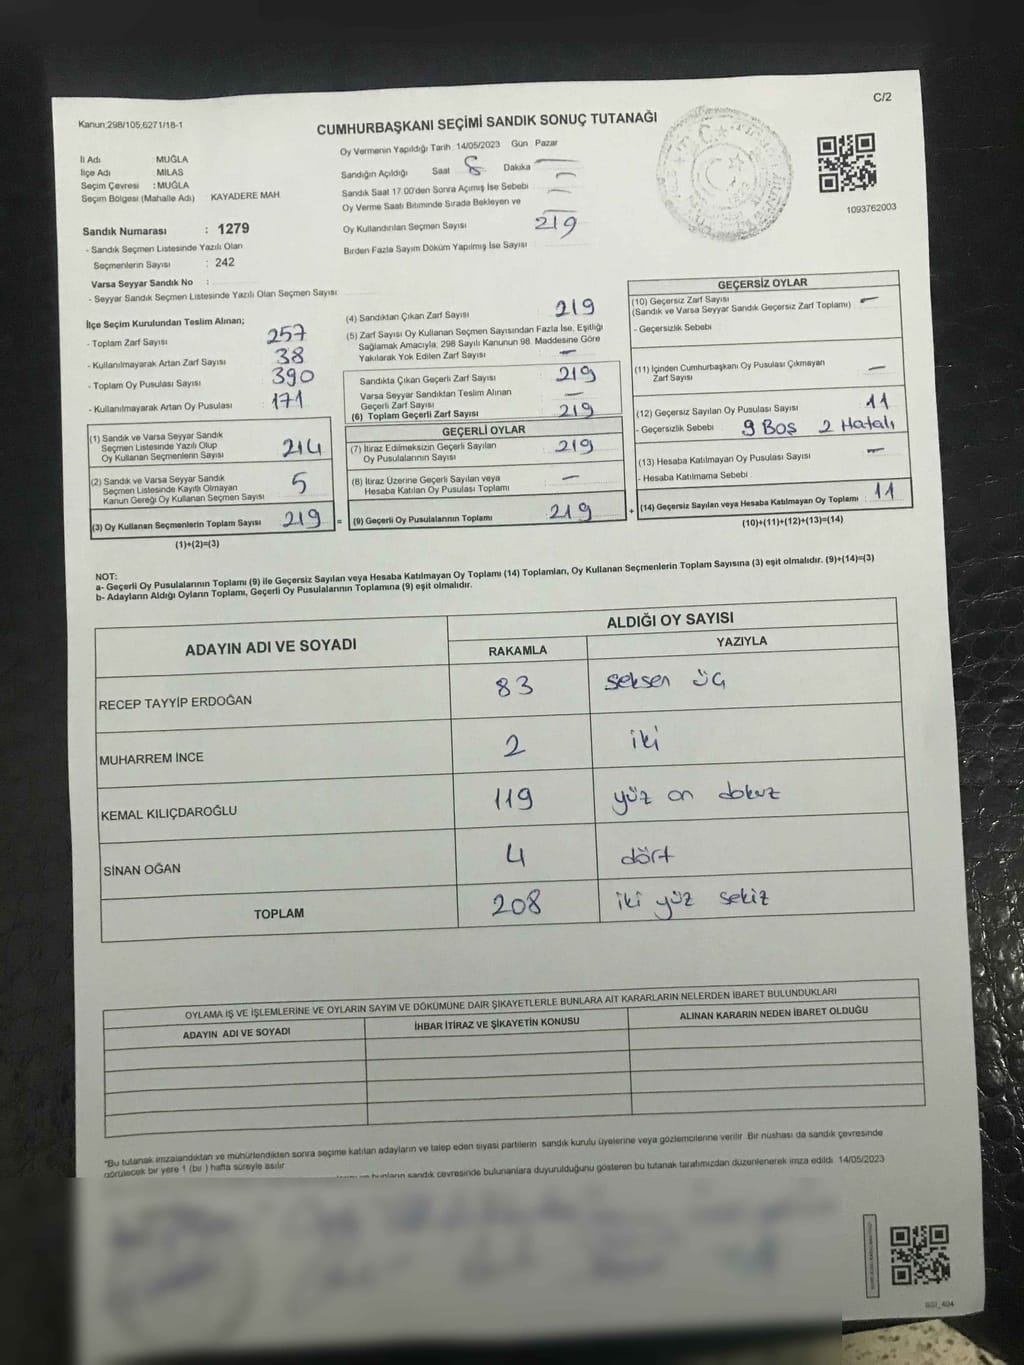 C/2
Kanun;298/105;6271/18-1
CUMHURBAŞKANI SEÇİMİ SANDIK SONUÇ TUTANAĞI
Oy Vermenin Yapıldığı Tarih 14/05/2023 Gün Pazar
İl Adı MUĞLA
İlçe Adı MİLAS
Seçim Çevresi : MUĞLA
Seçim Bölgesi (Mahalle Adı) KAYADERE MAH.
Sandığın Açıldığı Saat 8 Dakika —
Sandık Saat 17:00'den Sonra Açımış İse Sebebi —
Oy Verme Saati Bitiminde Sırada Bekleyen ve —
Oy Kullandırılan Seçmen Sayısı 219
Birden Fazla Sayım Döküm Yapılmış İse Sayısı
1093762003
Sandık Numarası : 1279
- Sandık Seçmen Listesinde Yazılı Olan
Seçmenlerin Sayısı : 242
Varsa Seyyar Sandık No :
- Seyyar Sandık Seçmen Listesinde Yazılı Olan Seçmen Sayısı:
İlçe Seçim Kurulundan Teslim Alınan;
- Toplam Zarf Sayısı 257
- Kullanılmayarak Artan Zarf Sayısı 38
- Toplam Oy Pusulası Sayısı 390
- Kullanılmayarak Artan Oy Pusulası 171
(1) Sandık ve Varsa Seyyar Sandık
Seçmen Listesinde Yazılı Olup
Oy Kullanan Seçmenlerin Sayısı 214
(2) Sandık ve Varsa Seyyar Sandık
Seçmen Listesinde Kayıtlı Olmayan
Kanun Gereği Oy Kullanan Seçmen Sayısı 5
(3) Oy Kullanan Seçmenlerin Toplam Sayısı 219 =
(1)+(2)=(3)
(4) Sandıktan Çıkan Zarf Sayısı 219
(5) Zarf Sayısı Oy Kullanan Seçmen Sayısından Fazla İse, Eşitliği
Sağlamak Amacıyla; 298 Sayılı Kanunun 98. Maddesine Göre
Yakılarak Yok Edilen Zarf Sayısı —
Sandıkta Çıkan Geçerli Zarf Sayısı 219
Varsa Seyyar Sandıktan Teslim Alınan
Geçerli Zarf Sayısı —
(6) Toplam Geçerli Zarf Sayısı 219
GEÇERLİ OYLAR
(7) İtiraz Edilmeksizin Geçerli Sayılan
Oy Pusulalarının Sayısı 219
(8) İtiraz Üzerine Geçerli Sayılan veya
Hesaba Katılan Oy Pusulası Toplamı —
(9) Geçerli Oy Pusulalarının Toplamı 219 +
GEÇERSİZ OYLAR
(10) Geçersiz Zarf Sayısı —
(Sandık ve Varsa Seyyar Sandık Geçersiz Zarf Toplamı)
- Geçersizlik Sebebi
(11) İçinden Cumhurbaşkanı Oy Pusulası Çıkmayan
Zarf Sayısı —
(12) Geçersiz Sayılan Oy Pusulası Sayısı 11
- Geçersizlik Sebebi 9 Boş 2 Hatalı
(13) Hesaba Katılmayan Oy Pusulası Sayısı —
- Hesaba Katılmama Sebebi
(14) Geçersiz Sayılan veya Hesaba Katılmayan Oy Toplamı 11
(10)+(11)+(12)+(13)=(14)
NOT:
a- Geçerli Oy Pusulalarının Toplamı (9) ile Geçersiz Sayılan veya Hesaba Katılmayan Oy Toplamı (14) Toplamları, Oy Kullanan Seçmenlerin Toplam Sayısına (3) eşit olmalıdır. (9)+(14)=(3)
b- Adayların Aldığı Oyların Toplamı, Geçerli Oy Pusulalarının Toplamına (9) eşit olmalıdır.
ADAYIN ADI VE SOYADI
ALDIĞI OY SAYISI
RAKAMLA YAZIYLA
RECEP TAYYİP ERDOĞAN 83 seksen üç
MUHARREM İNCE 2 iki
KEMAL KILIÇDAROĞLU 119 yüz on dokuz
SİNAN OĞAN 4 dört
TOPLAM 208 iki yüz sekiz
OYLAMA İŞ VE İŞLEMLERİNE VE OYLARIN SAYIM VE DÖKÜMÜNE DAİR ŞİKAYETLERLE BUNLARA AİT KARARLARIN NELERDEN İBARET BULUNDUKLARI
ADAYIN ADI VE SOYADI İHBAR İTİRAZ VE ŞİKAYETİN KONUSU ALINAN KARARIN NEDEN İBARET OLDUĞU
*Bu tutanak imzalandıktan ve mühürlendikten sonra seçime katılan adayların ve talep eden siyasi partilerin sandık kurulu üyelerine veya gözlemcilerine verilir. Bir nüshası da sandık çevresinde
görülecek bir yere 1 (bir ) hafta süreyle asılır
bunların sandık çevresinde bulunanlara duyurulduğunu gösteren bu tutanak tarafımızdan düzenlenerek imza edildi. 14/05/2023